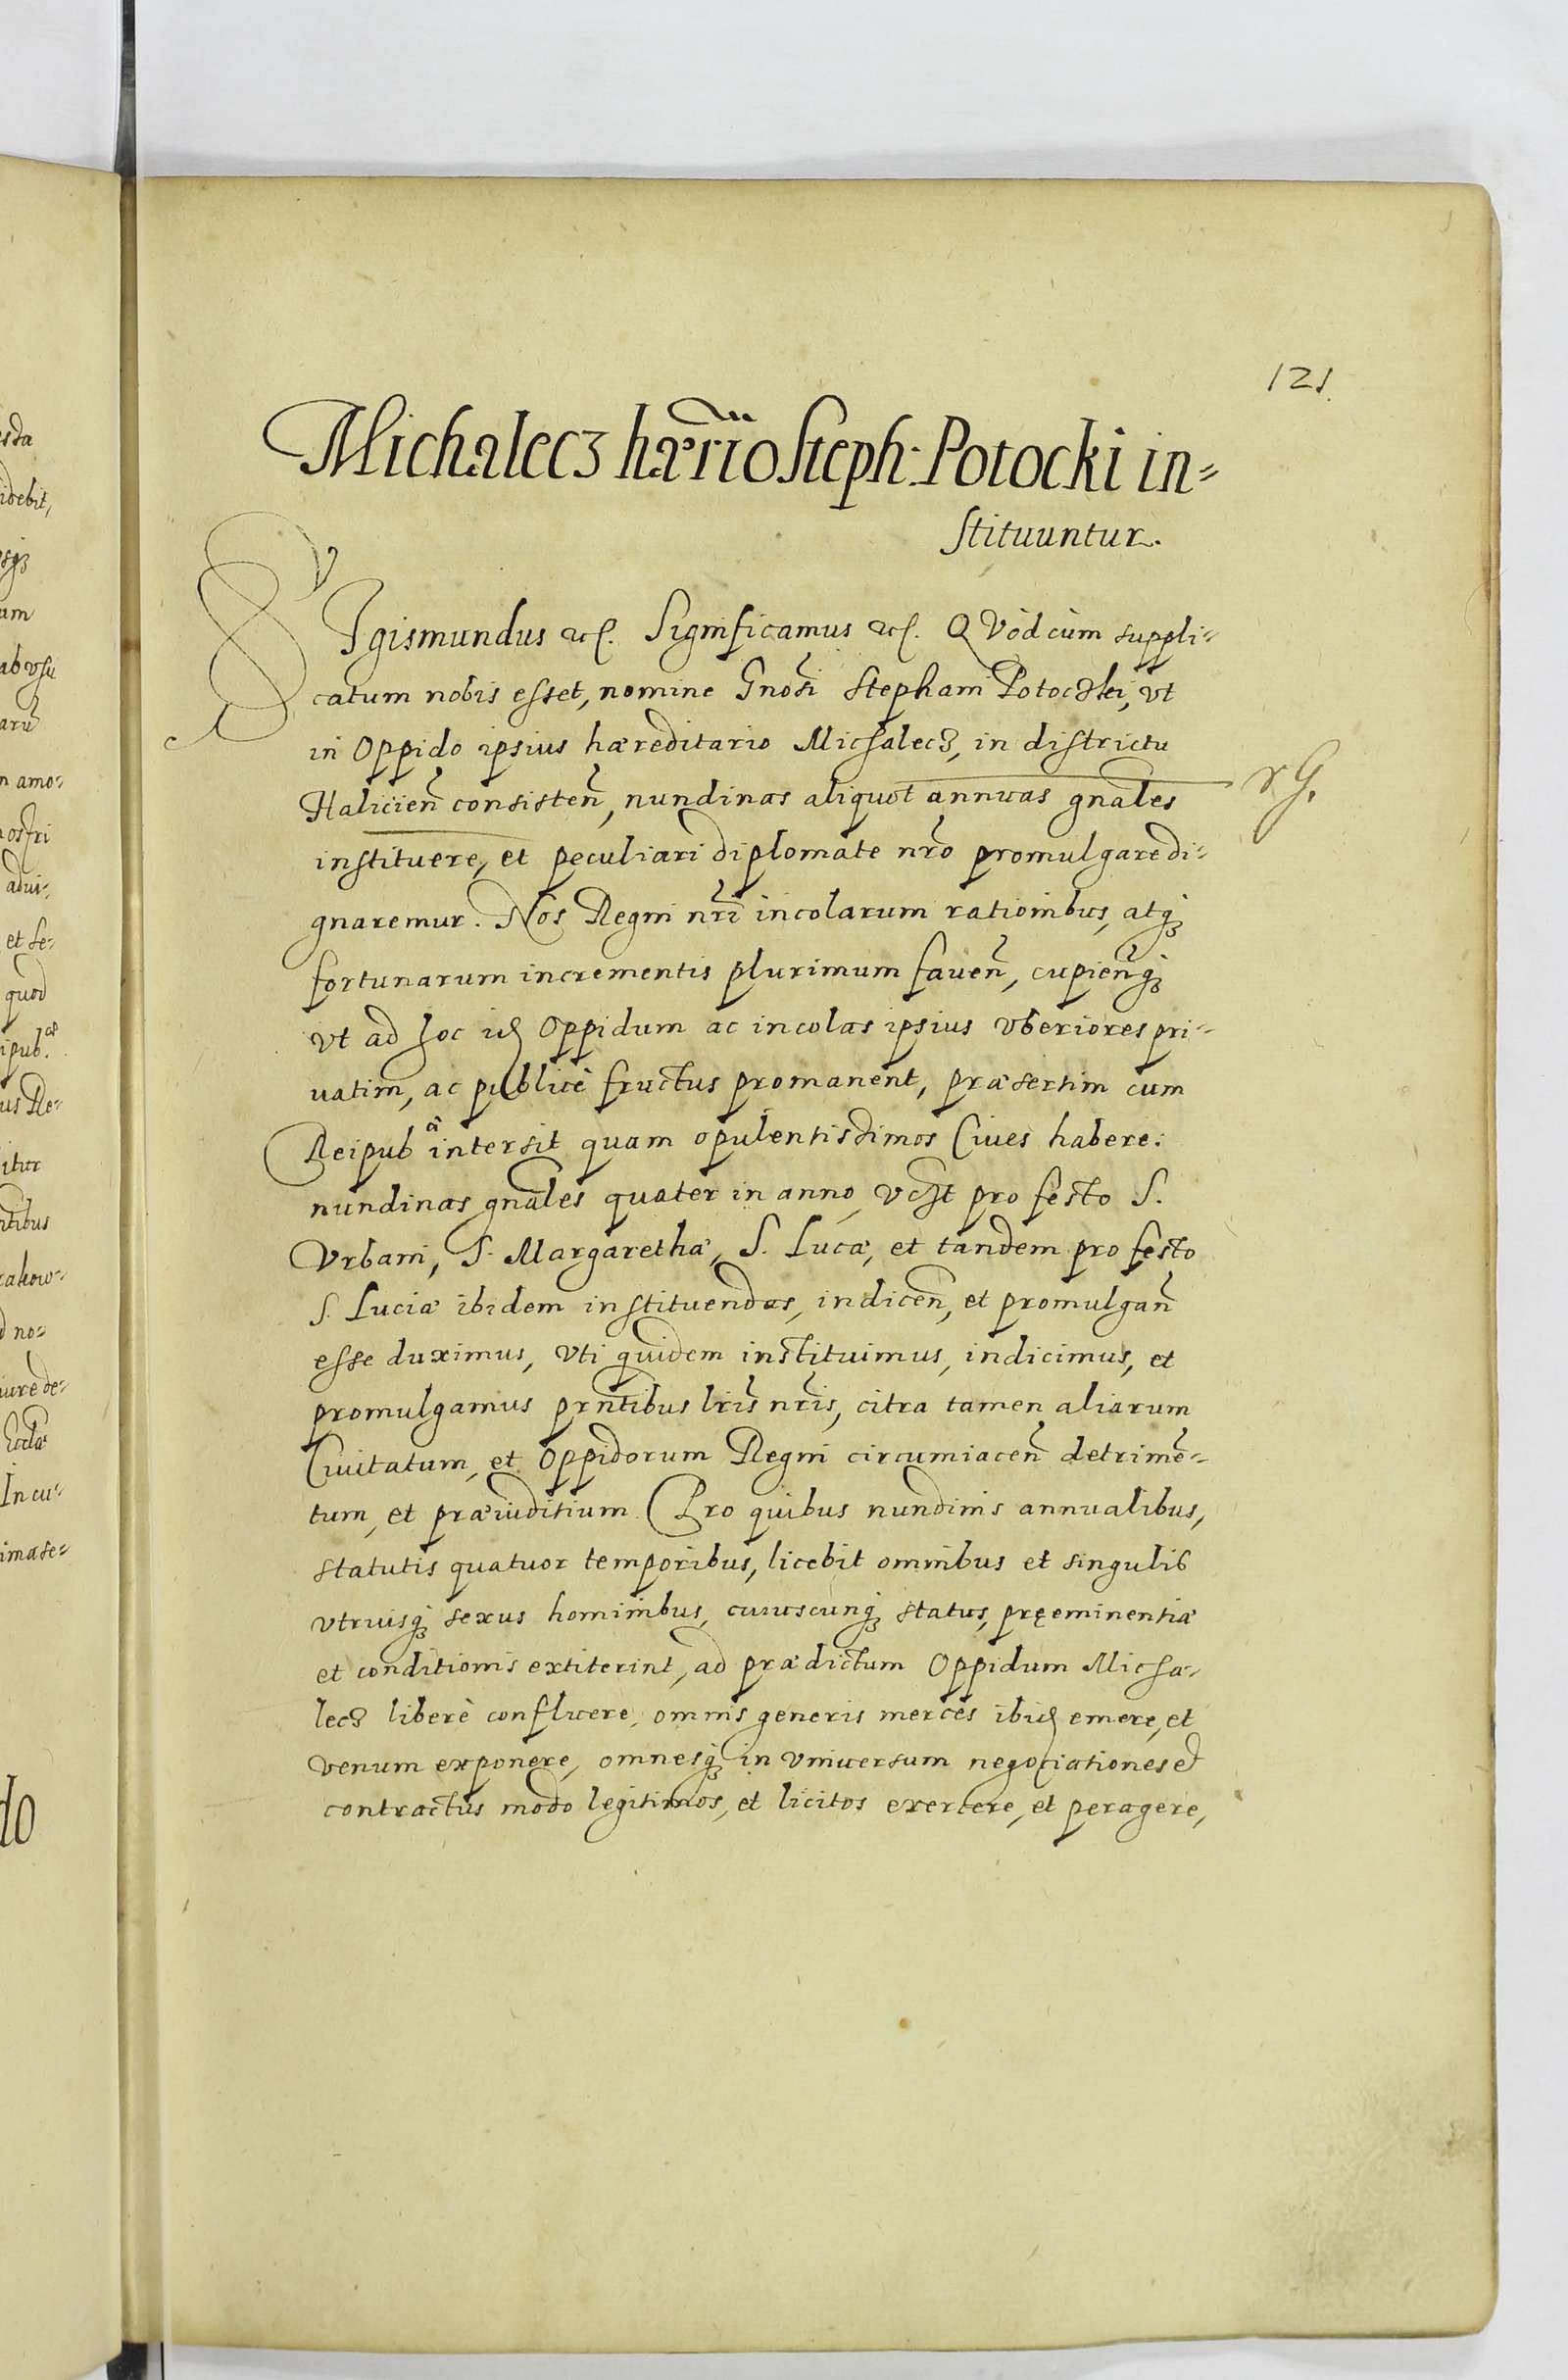 121.
Michalecz hæŕrio Steph: Potocki in=
stituuntur.
SIgismundus etc. Significamus etc. QVòd cùm suppli=
catum nobis esset, nomine Gnosi Stephani Potoczki, vt
in Oppido ipsius hæreditario Michalecz, in districtu
Halicień consisteń, nundinas aliquot annuas gnales
instituere, et peculiari diplomate nro promulgare di=
gnaremur. Nos Regni nri incolarum rationibus, atq3
fortunarum incrementis plurimum faueń, cupieńq3
vt ad hoc id Oppidum ac incolas ipsius vberiores pri=
uatim, ac publicè fructus promanent, præsertim cum
Reipubᶜᵃ intersit quam opulentissimos Ciues habere:
nundinas gnales quater in anno, vclt pro festo S.
Vrbani, S. Margarethæ, S. Lucæ, et tandem pro festo
S. Luciæ ibidem instituendas, indiceń, et promulgań
esse duximus, vti quidem instituimus, indicimus, et
promulgamus prntibus lris nris, citra tamen aliarum
Ciuitatum, et Oppidorum Regni circumiaceń detrimē=
tum, et præiuditium. Pro quibus nundinis annualibus,
statutis quatuor temporibus, licebit omnibus et singulis
vtriusq3 sexus hominibus, cuiuscunq3 status, pręeminentiæ
et conditionis extiterint, ad prædictum Oppidum Micha=
lecz liberè confluere, omnis generis merces ibid emere, et
venum exponere, omnesq3 in vniuersum negociationes et
contractus modo legitimos, et licitos exercere, et peragere,
esda
idebit,
um
ab vsu
n amo=
nostri
adui=
et se=
quod
us Re=
itur
ntibus
cakow=
d no=
iure de=
In cu=
imase=
do